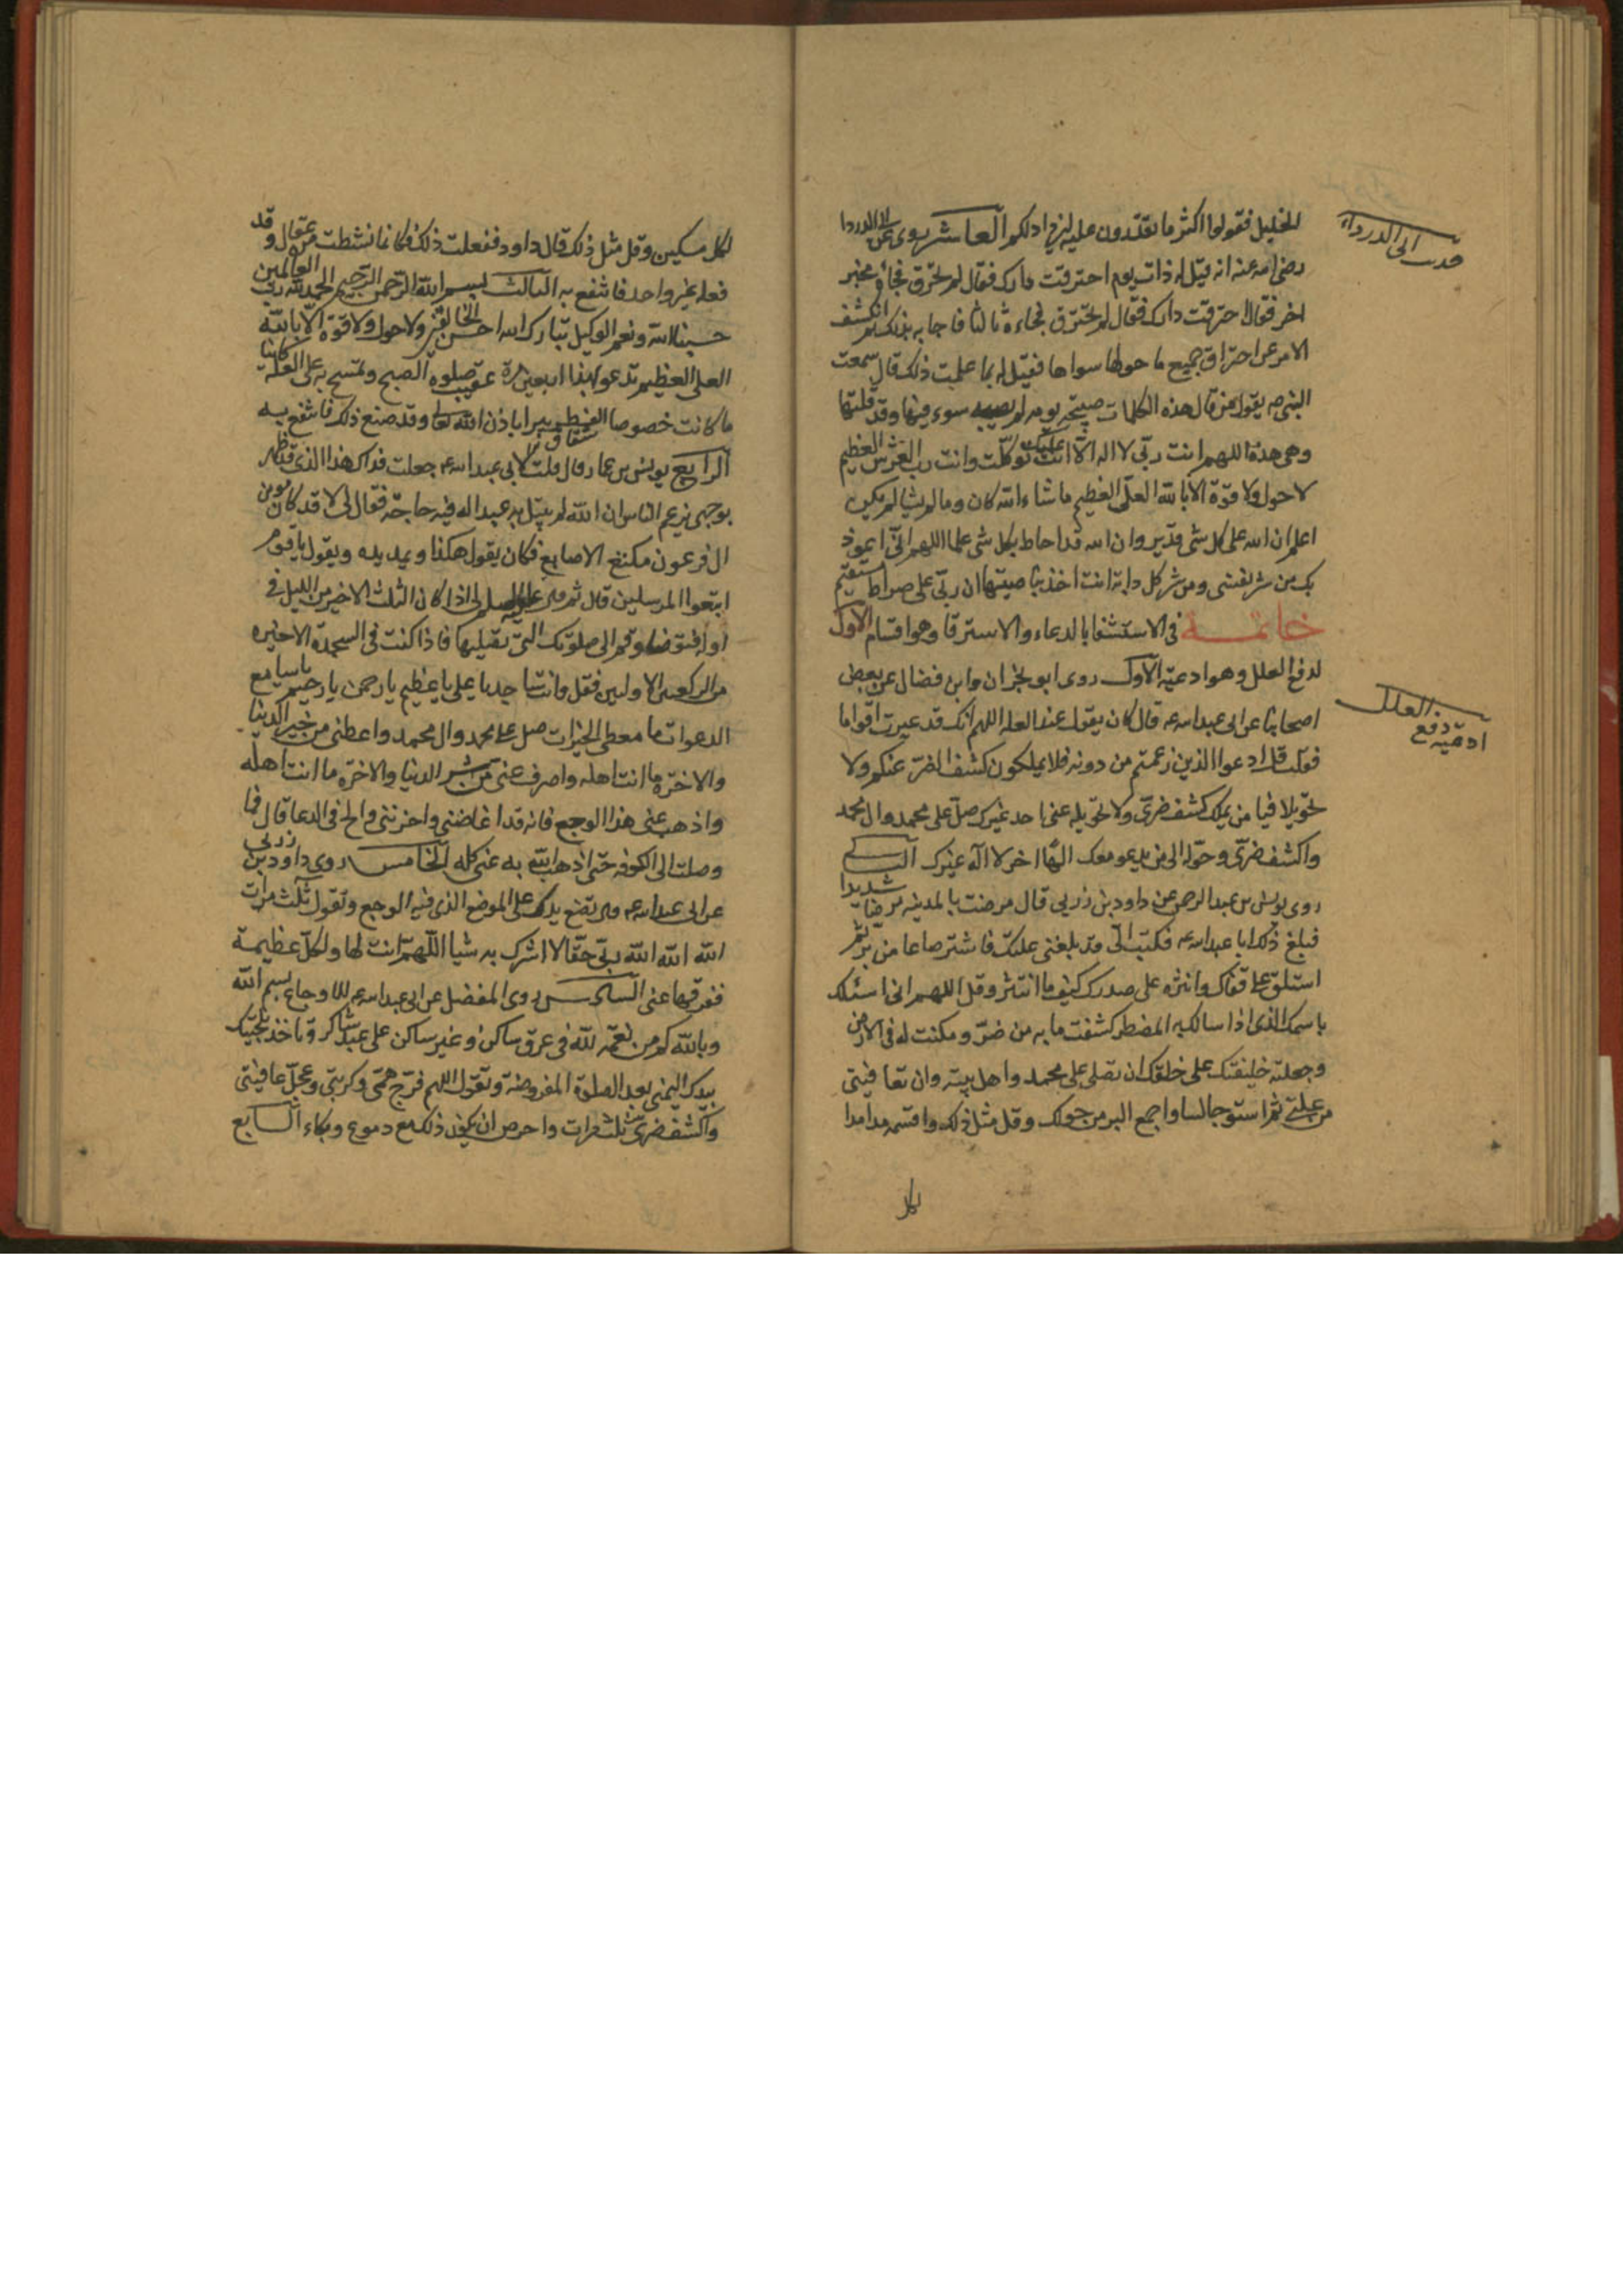 الخليل فقولوا اكثر ما تقدرون عليه ليزدادلكم العاشر روى عن ابى الدردا
رضى الله عنه انه قيل له ذات يوم احترقت دارك فقال لم تحترق فجاء مخبر
اخر فقال احترقت دارك فقال لم تحترق فجاءه ثالث فاجابه بذلك ثم انكشف
الامر عن احتراق جميع ما حولها سواها فقيل له بما علمت ذلك قال سمعت
النبى صه يقول من قال هذه الكلمات صبيحة يومه لم يصبه سوء فيها وقد قلتها
وهى هذة اللهم انت ربّى لا اله الّا انت عليك توكلّت وانت رب العرش العظيم
لا حول ولا قوّة الا بالله العلّى العظيم ما شاء الله كان وما لم يشا لم يكن
اعلم ان الله على كل شى قدير وان الله قد احاط بكل شى علما اللهم انّى اعوذ
بك من شر نفسى ومن شر كل دابة انت اخذ بنا صيتها ان ربّى على صراط مستقيم
خاتمة فى الاستشفا بالدعاء والاسترقا وهو اقسام الاول
لدفع العلل وهو ادعيّة الاوّل روى ابو نجران وابن فضال عن بعض
اصحابنا عن ابى عبد الله عه قال كان يقول عند العله اللهم انّك قد عيرت اقواما
فقلت قل ادعوا الذين زعمتم من دونه فلا يملكون كشف الضرّ عنكم ولا
تحويلا فيا من يملك كشف ضرّى ولا تحويله عنى احد غيرك صلّ على محمد وال محمد
واكشف ضرّى وحوّله الى من يدعو معك الهًا اخر لا اله غيرك
روى يونس بن عبد الرحمن عن داود بن زربى قال مرضت بالمدينه مرضا شديدا
فبلغ ذلك ابا عبد الله عه فكتب الىّ قد بلغنى علتك فاشتر صاعا من برّ ثم
استلق على قفاك وانثره على صدرك كيف ما انتثر وقل اللهم انى اسئلك
باسمك الذى اذا سالك به المضطر كشفت ما به من ضرّ ومكنت له فى الارض
وجعلته خليفتك على خلقك ان تصلى على محمد واهل بيته وان تعافينى
من علتى ثم استو جالسا واجمع البر من حولك وقل مثل ذلك واقسمه مدا مدا
لكل
ابى الدرداء
ادعيه دفع العلل
لكل مسكين وقل مثل ذلك قال داود ففعلت ذلك فكانما نشطت من عقال وقد
فعله غير واحد فانتفع به الثالث بسم الله الرّحمن الرّحيم الحمد لله ربّ العالمين
حسبنا الله ونعم الوكيل تبارك الله احسن الخالقين ولا حول ولا قوّة الّا بالله
العلى العظيم تدعو بهذا اربعين مرة عقيب صلوه الصبح وتمسح به على العلّة كائنا
ما كانت خصوصا الفطر يبرا باذن الله تعا وقد صنع ذلك فانتفع به
الرابع يونس بن عمار قال قلت لابى عبد الله عه جعلت فداك هذا الذى قد ظهر
بوجهى يزعم الناس ان الله لم يبتل به عبدا له فيه حاجة فقال لى لا قد كان مومن
ال فرعون مكنع الاصابع فكان يقول هكذا ويمد يده ويقول يا قوم
اتبعوا المرسلين قال ثم قال لى اذا كان الثلث الاخير من الليل فى
اوله فتوضا وقم الى صلوتك التى تصليها فاذا كنت فى السجدة الاخيره
من الركعتين الاوليين فقل وانت ساجد يا على يا عظيم يا رحمن يا رحيم يا سامع
الدعوات يا معطى الخيرات صل على محمد وال محمد واعطنى من خير الدنيا
والاخرّة ما انت اهله واصرف عنى من شر الدنيا والاخرّة ما انت اهله
واذهب عنى هذا الوجع فانه قد اغاضنى واحزننى والح فى الدعا قال فما
وصلت الى الكوفه حتى اذهب الله به عنى كله الخامس روى داود بن زربى
عن ابى عبد الله عه قال تضع يدك على الموضع الذى فيه الوجع وتقول ثلث مرات
الله الله الله ربّى حقّا لا اشرك به شيا اللّهمّ انت لها ولكلّ عظيمة
ففرقها عنى السادس روى المفضل عن ابى عبد الله عه للاوجاع بسم الله
وبالله كم من نعمه لله فى عرق ساكن وغير ساكن على عبد شاكر وتاخذ بلحيتك
بيدك اليمنى بعد الصلوة المفروضة وتقول اللهم فرّج همّى وكربتى وعجلّ عافيتى
واكشف ضرى ثلث مرات واحرص ان يكون ذلك مع دموع وبكاء السابع